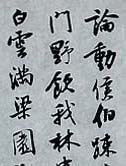 論動侯伯疎
門野飲我林
白雲滿梁園